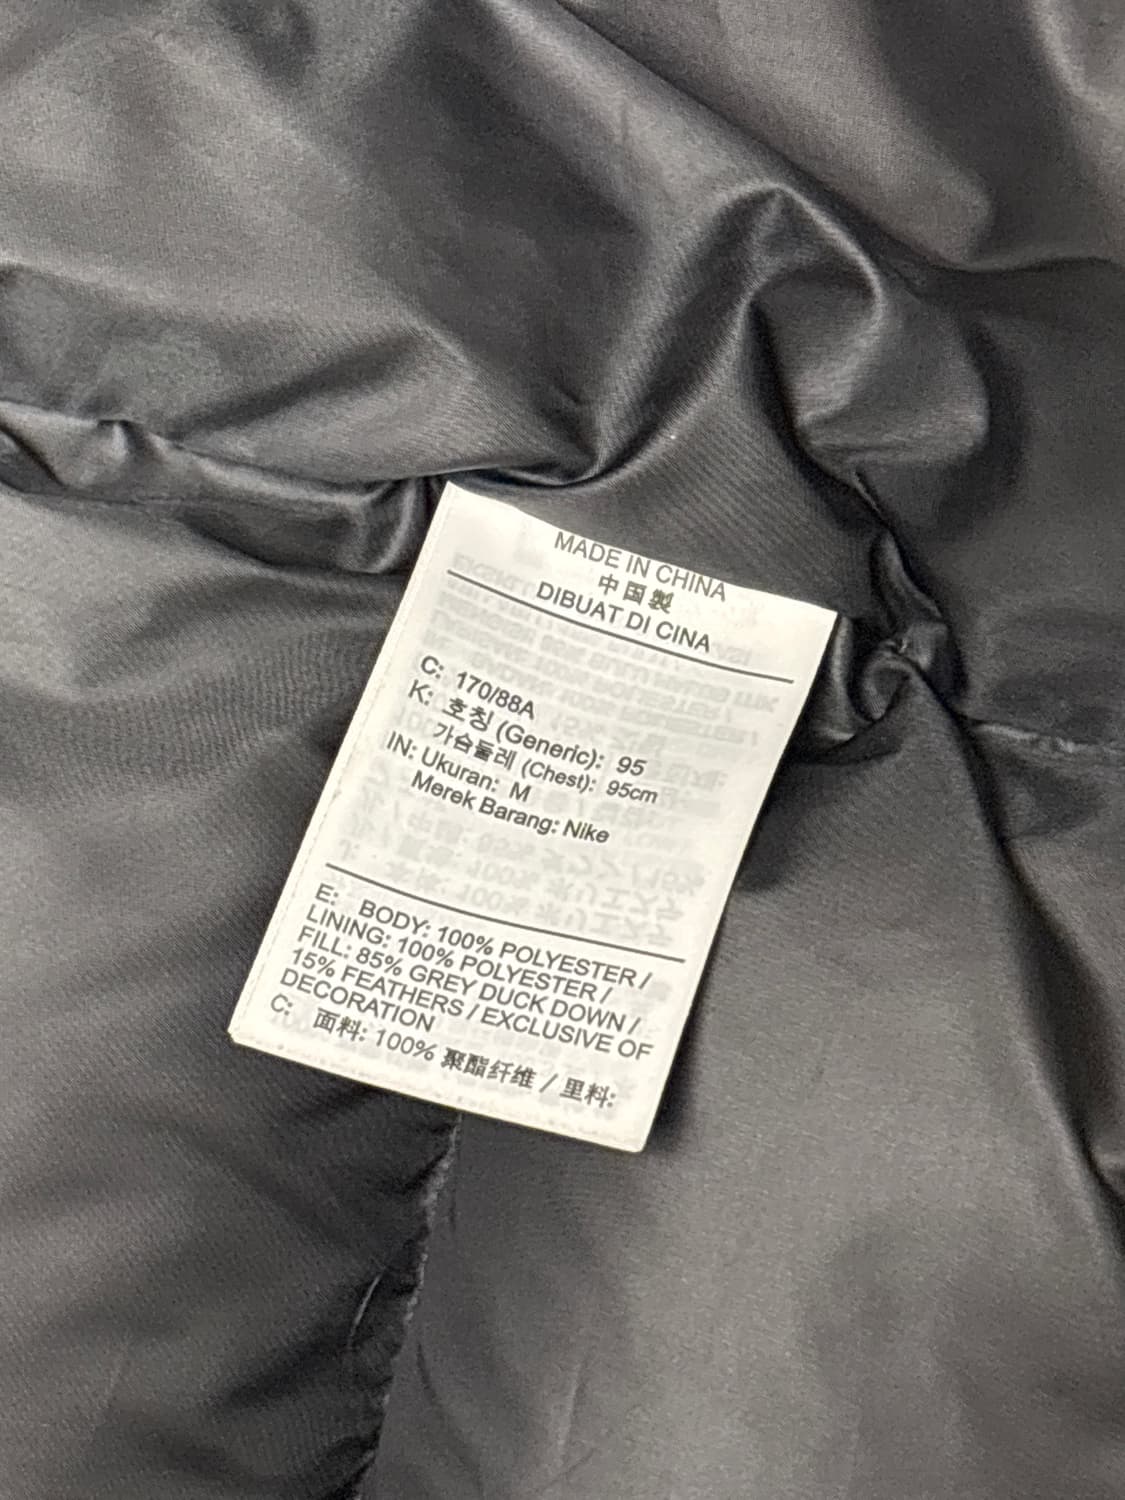 MADE IN CHINA
中国製
DIBUAT DI CINA
C: 170/88A
K: 호칭 (Generic): 95
가슴둘레 (Chest): 95cm
IN: Ukuran: M
Merek Barang: Nike
E: BODY: 100% POLYESTER /
LINING: 100% POLYESTER /
FILL: 85% GREY DUCK DOWN /
15% FEATHERS / EXCLUSIVE OF
DECORATION
C: 面料: 100% 聚酯纤维 / 里料: